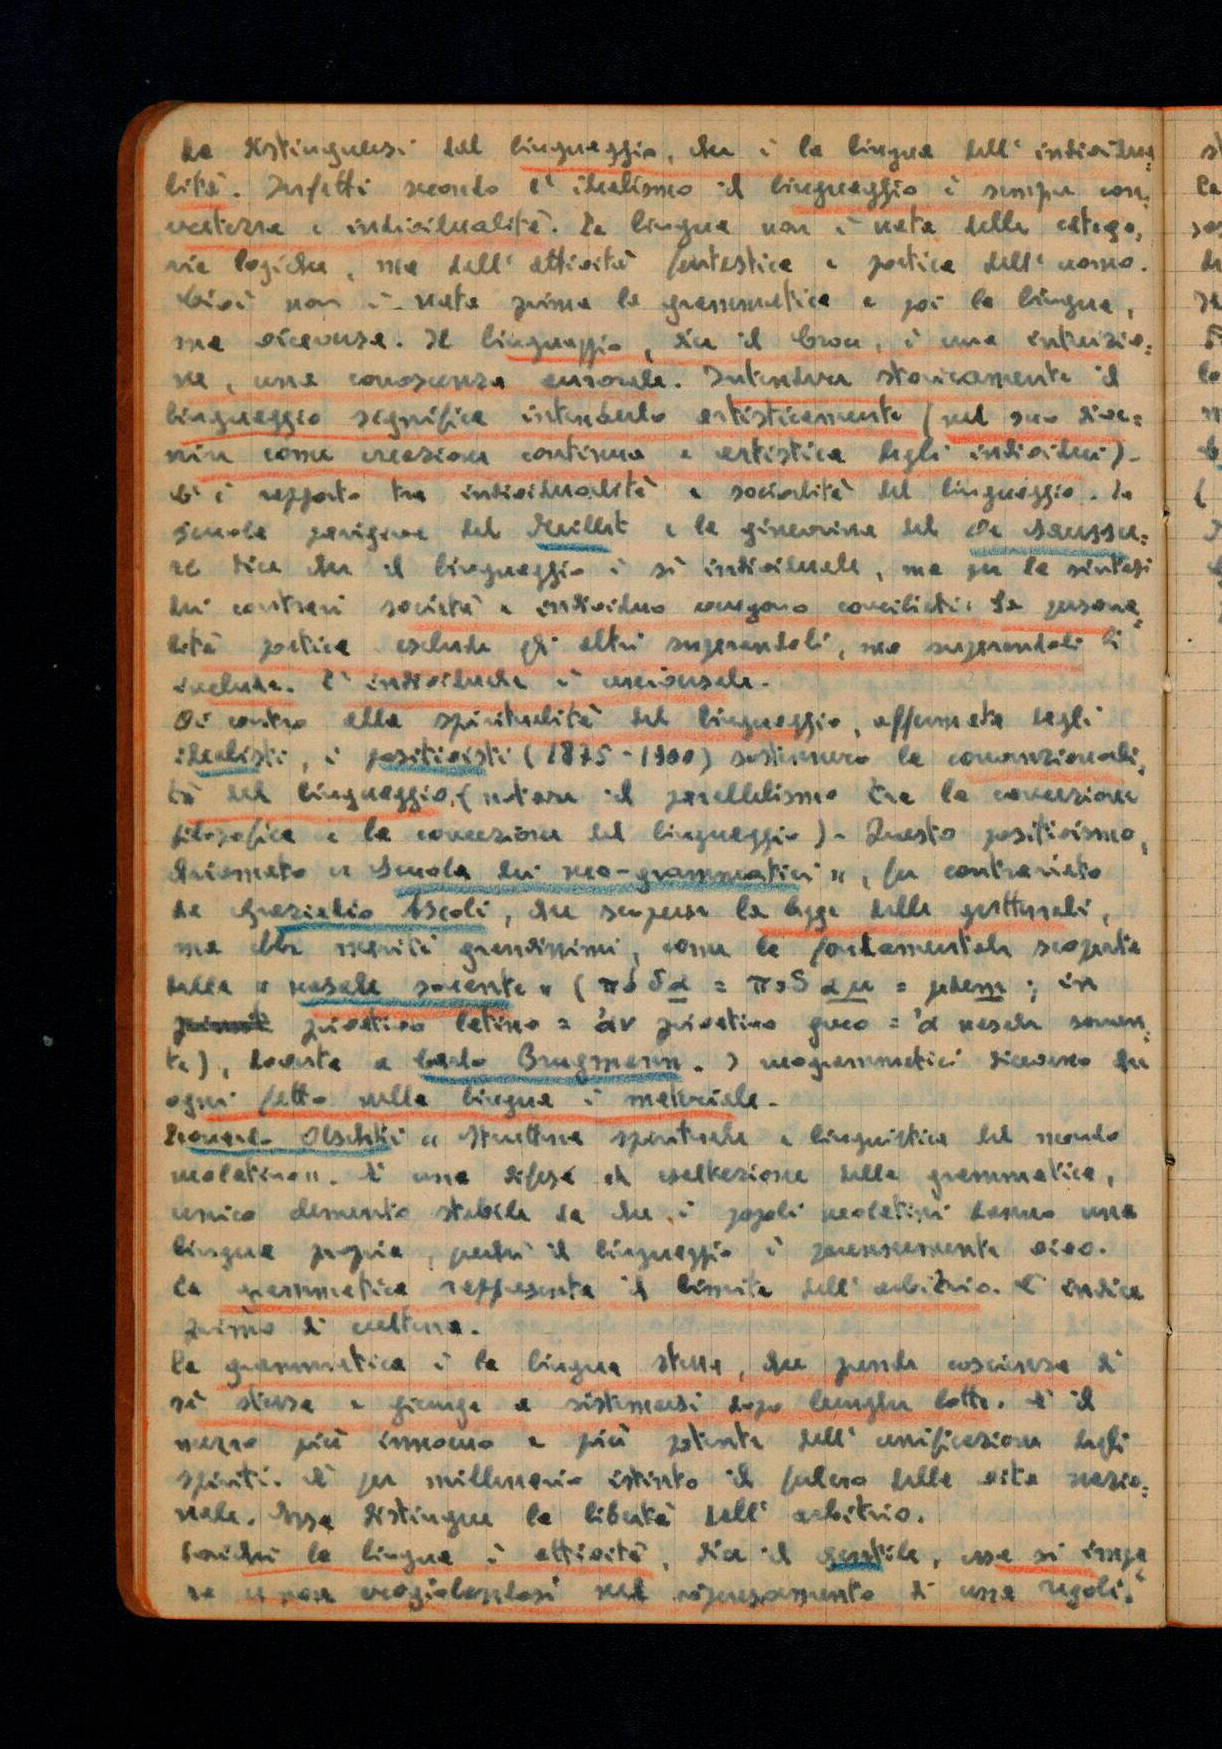 da distinguersi dal linguaggio, che è la lingua dell' individua=
lità. Infatti secondo l' idealismo il linguaggio è sempre con=
cretezza e individualità. La lingua non è nata dalle catego=
rie logiche, ma dall' attività fantastica e poetica dell' uomo.
Cioè non è nata prima la grammatica e poi la lingua,
ma viceversa. Il linguaggio, dice il Croce, è una intuizio=
ne, una conoscenza aurorale. Intendere storicamente il
linguaggio significa intenderlo artisticamente (nel suo dive=
nire come creazione continua e artistica degli individui).
C' è rapporto tra individualità e socialità del linguaggio. La
scuola parigina del Meillet e la ginevrina del De Saussu=
re dice che il linguaggio è sì individuale, ma per la sintesi
dei contrari società e individuo vengono conciliati. La persona=
lità poetica esclude gli altri superandoli, ma superandoli li
include. L' individuale è universale.
Di contro alla spiritualità del linguaggio, affermata dagli
idealisti, i positivisti (1875-1900) sostennero la convenzionali=
tà del linguaggio, (notare il parallelismo tra la concezione
filosofica e la concezione del linguaggio). Questo positivismo,
chiamato « Scuola dei neo-grammatici », fu contrariato
da Graziadio Ascoli, che scoperse la legge delle gutturali,
ma ebbe meriti grandissimi, come la fondamentale scoperta
della « nasale sonante » (πόδα = πόδ αμ = pedem; in
privativo latino = 'αν privativo greco = 'α nasale sonan=
te), dovuta a Carlo Brugmann. I neogrammatici dicevano che
ogni fatto nella lingua è materiale.
Leonardo Olschki « Struttura spirituale e linguistica del mondo
neolatino ». È una difesa ed esaltazione della grammatica,
unico elemento stabile da che i popoli neolatini hanno una
lingua propria, perché il linguaggio è perennemente vivo.
La grammatica rappresenta il limite dell' arbitrio. È indice
primo di cultura.
La grammatica è la lingua stessa, che prende coscienza di
sé stessa e giunge a sistemarsi dopo lunghe lotte. È il
mezzo più innocuo e più potente dell' unificazione degli
spiriti. È per millenario istinto il fulcro della vita nazio=
nale. Essa distingue la libertà dall' arbitrio.
Poiché la lingua è attività, dice il Gentile, essa si impa=
ra e non vagolandosi nel ripensamento di una regoli=